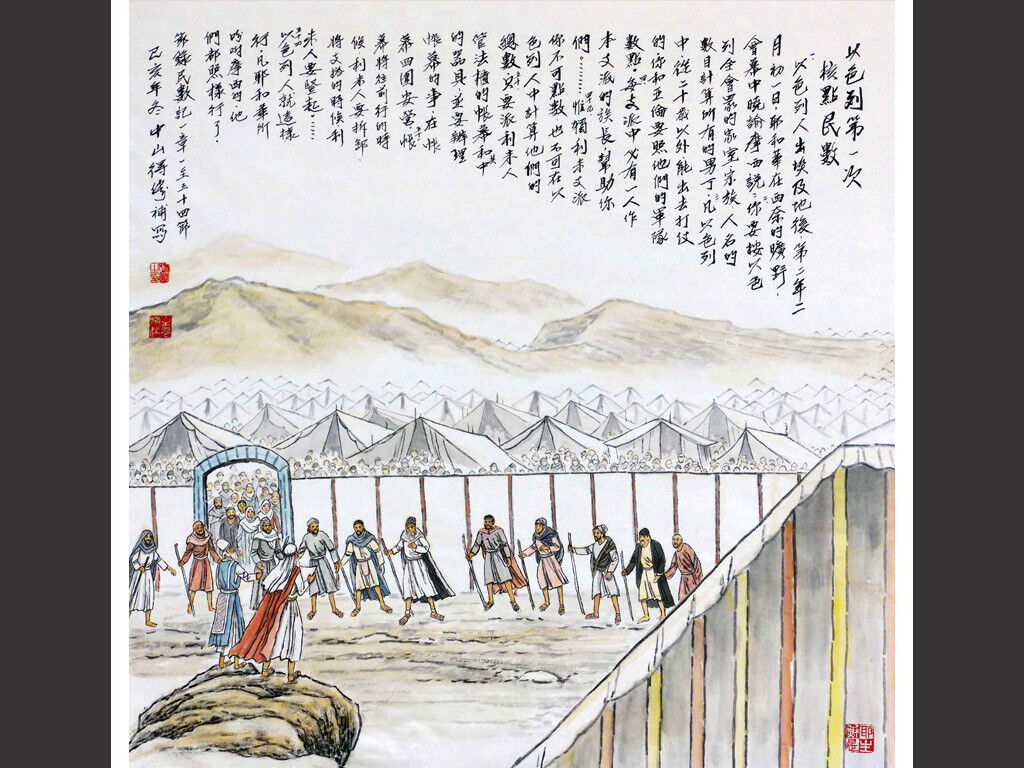 以色列第一次
核點民數
以色列人出埃及地後，第二年二
月初一日，耶和華在西奈的曠野，
會幕中曉諭摩西說：你要按以色
列全會眾的家室、宗族、人名的
數目計算所有的男丁。凡以色列
中從二十歲以外能出去打仗
的，你和亞倫要照他們的軍隊
數點。每支派中必有一人作
本支派的族長，幫助你
們。………惟獨利未支派
你不可點數，也不可在以
色列人中計算他們的
總數。只要派利未人
管法櫃的帳幕和其中
的器具，並要辦理
帳幕的事，在帳
幕四圍安營。帳
幕將往前行的時
候，利未人要拆卸；
將支搭的時候，利
未人要豎起。……
以色列人就這樣
行，凡耶和華所
吩咐摩西的，他
們都照樣行了。
節錄民數記一章一至五十四節
己亥年冬中山補寫